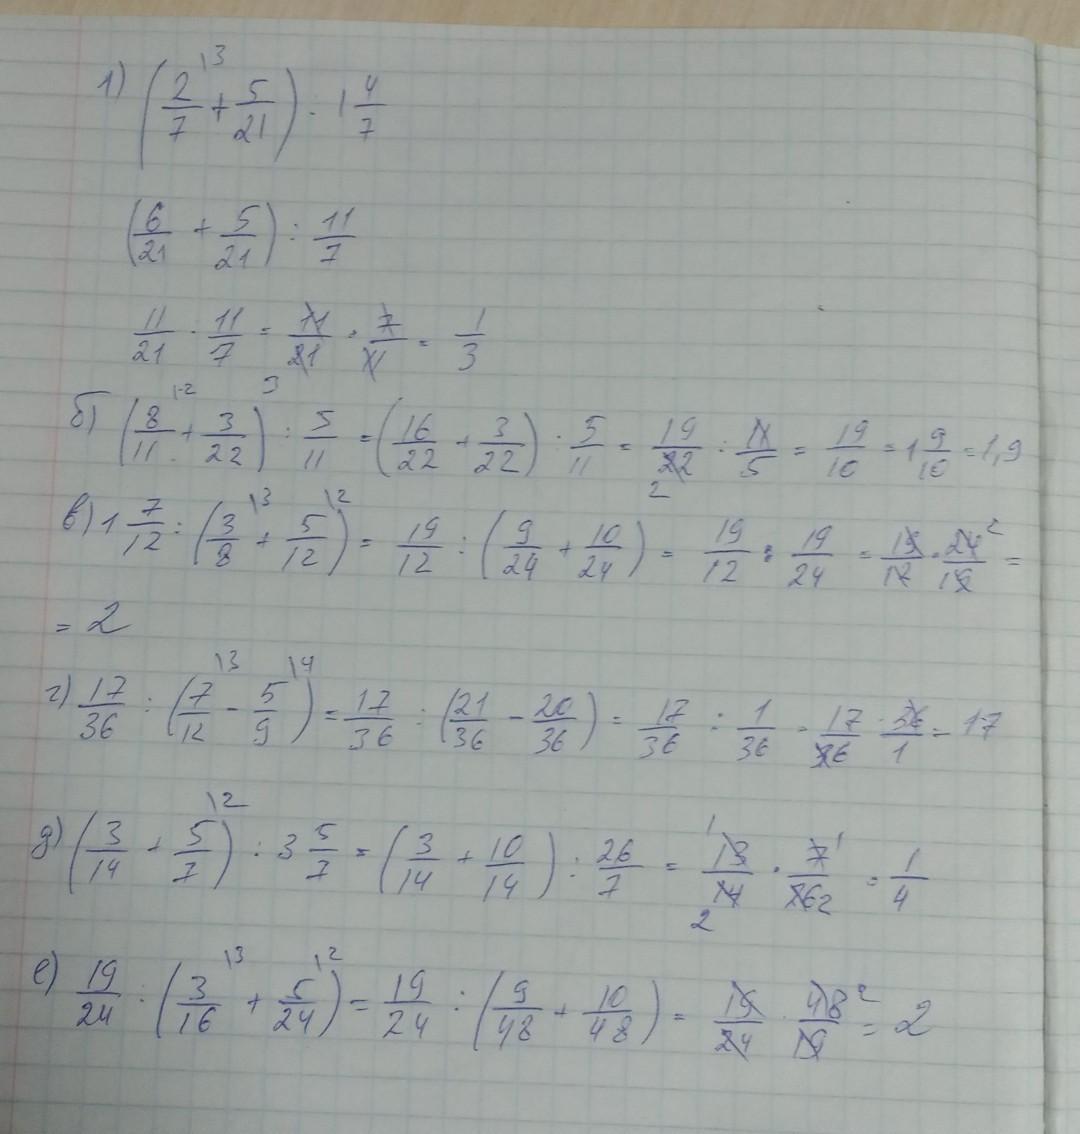 1) (2/7\3 + 5/21) : 1 4/7
(6/21 + 5/21) : 11/7
11/21 : 11/7 = 11/21 · 7/11 = 1/3
б) (8/11\2 + 3/22) : 5/11 = (16/22 + 3/22) : 5/11 = 19/22 2 : 11/5 = 19/10 = 1 9/10 = 1,9
в) 1 7/12 : (3/8\3 + 5/12\2) = 19/12 : (9/24 + 10/24) = 19/12 : 19/24 = 19/12 · 24 2/19 =
= 2
г) 17/36 : (7/12\3 - 5/9\4) = 17/36 : (21/36 - 20/36) = 17/36 : 1/36 = 17/36 · 36/1 = 17
д) (3/14 + 5/7\2) : 3 5/7 = (3/14 + 10/14) : 26/7 = 1 13/14 2 · 7 1/26 2 = 1/4
е) 19/24 : (3/16\3 + 5/24\2) = 19/24 : (9/48 + 10/48) = 19/24 · 48 2/19 = 2